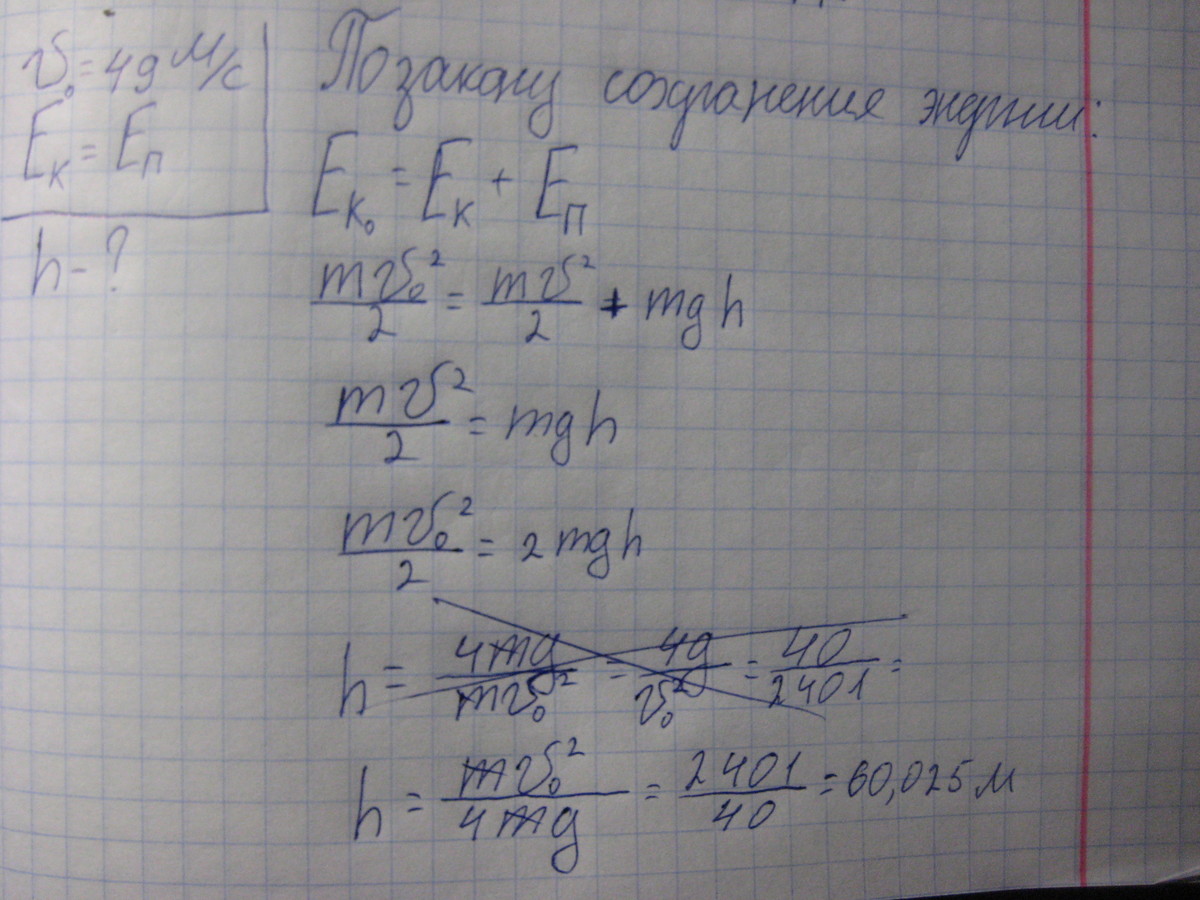 v₀ = 49 м/с
Eк = Eп
h - ?
По закону сохранения энергии:
Eк₀ = Eк + Eп
mv₀²/2 = mv²/2 + mgh
mv²/2 = mgh
mv₀²/2 = 2mgh
h = 4mg/mv₀² = 4g/v₀² = 40/2401 =
h = mv₀²/4mg = 2401/40 = 60,025 м